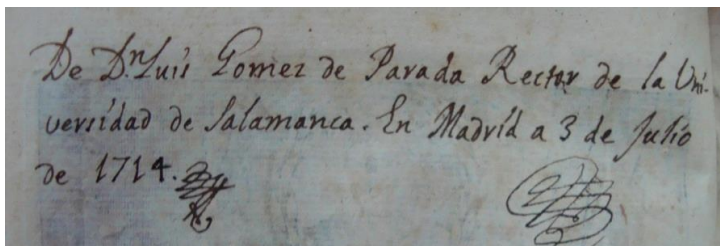 De Dn. Luis Gomez de Parada Rector de la Uni-
versidad de Salamanca. En Madrid a 3 de Julio
de 1714.